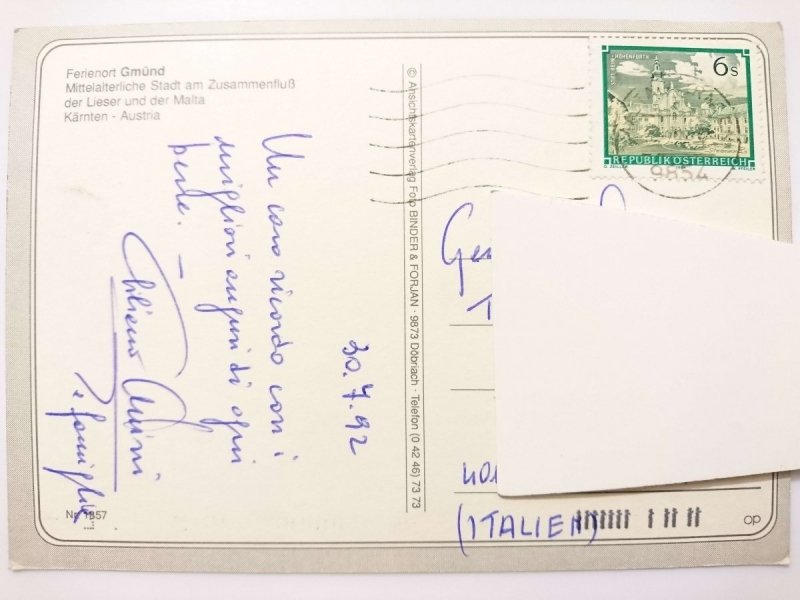 Ferienort Gmünd
Mittelalterliche Stadt am Zusammenfluß
der Lieser und der Malta
Kärnten - Austria
Un caro ricordo con i
migliori auguri di ogni
bene. -
e famiglia
30.7.92
Nr. 1357
© Ansichtskartenverlag Foto BINDER & FORJAN · 9873 Döbriach · Telefon (0 42 46) 73 73
6s
REPUBLIK ÖSTERREICH
9854
Ge
(ITALIEN)
op